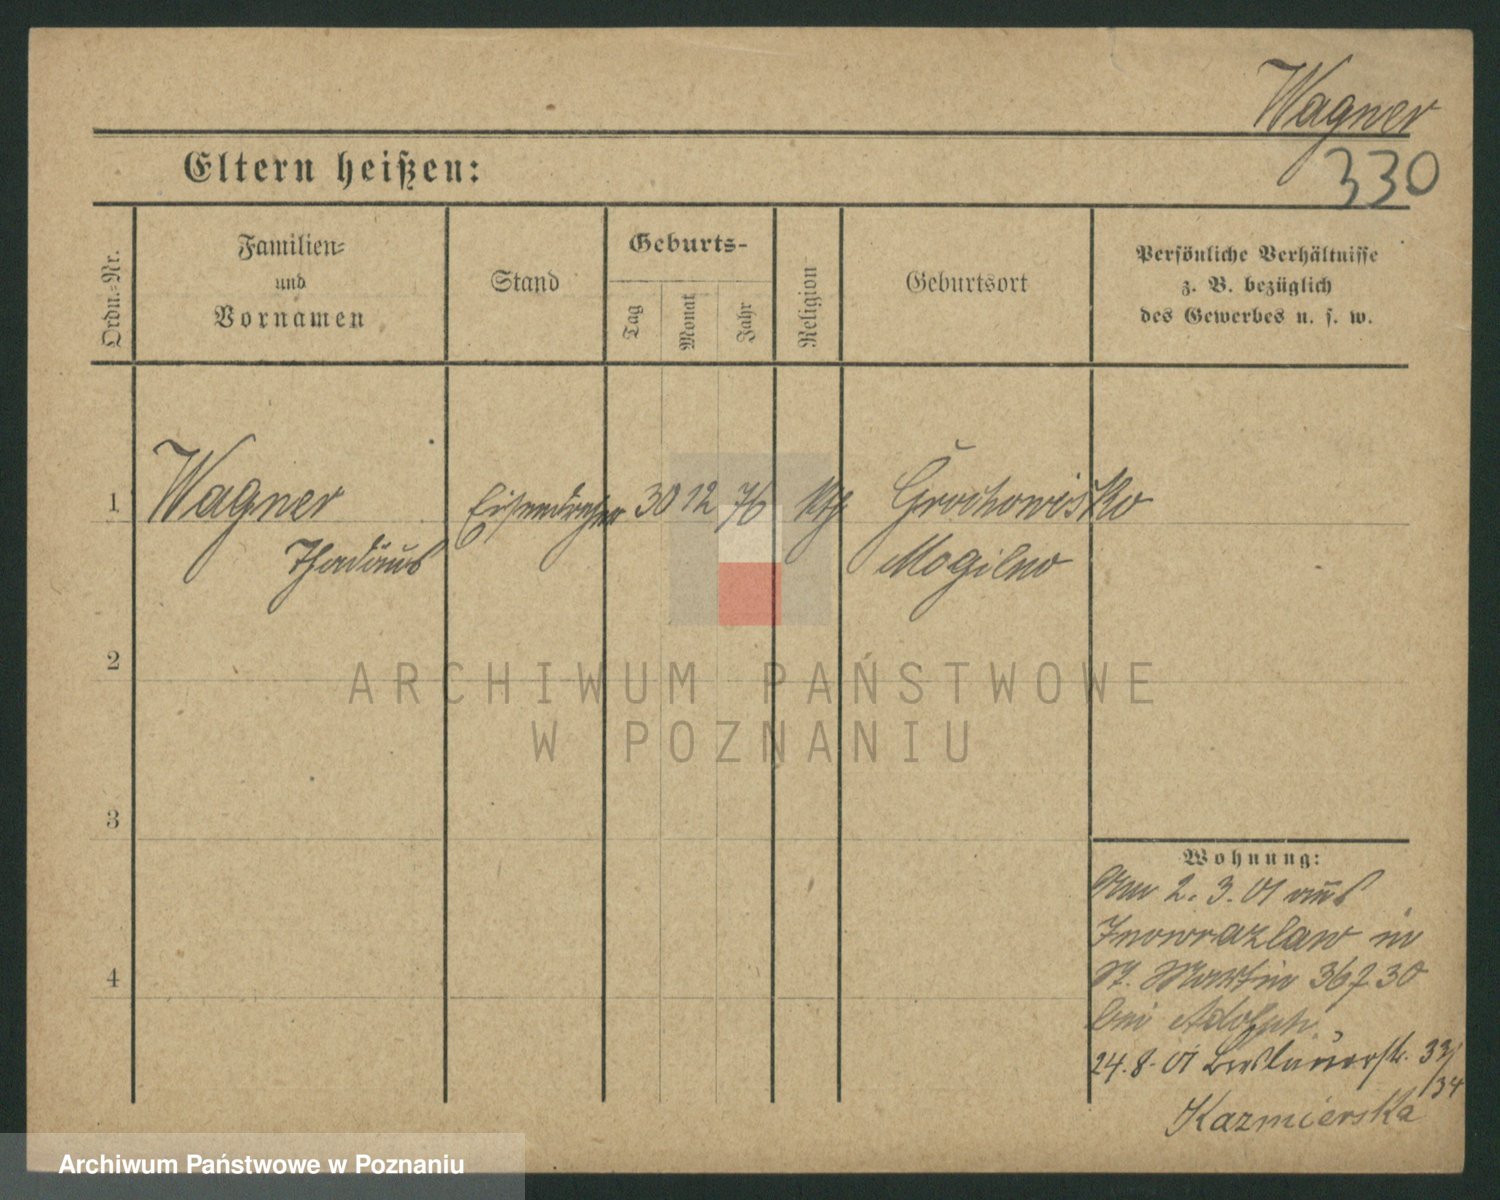 Wagner
330
Eltern heißen:
Ordn.-Nr.
Familien-
und
Vornamen
Stand
Geburts-
Tag
Monat
Jahr
Religion
Geburtsort
Persönliche Verhältnisse
z. B. bezüglich
des Gewerbes u. s. w.
1
Wagner
Thadäus
Eisendreher
30
12
76
kth
Grochowisko
Mogilno
2
ARCHIWUM PAŃSTWOWE
W POZNANIU
3
4
Wohnung:
2. 3. 01 aus
Inowrazlaw in
St. Martin 36
bei Adolph.
24. 8. 01 33/34
Kazmierska
Archiwum Państwowe w Poznaniu